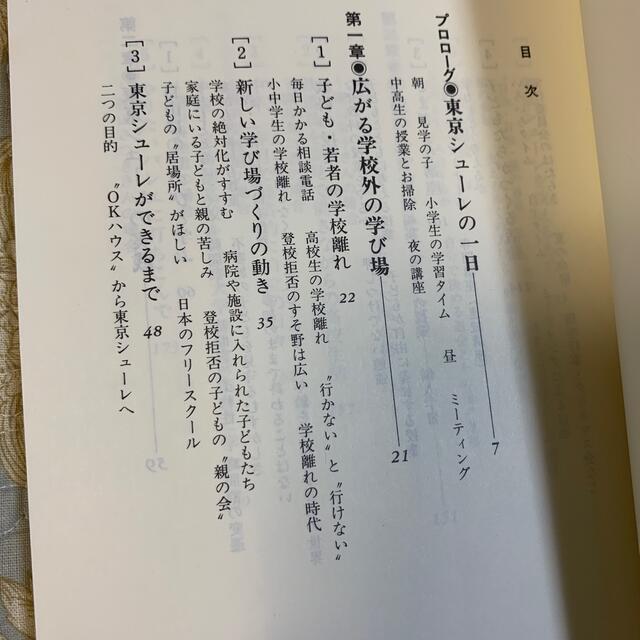 目次
プロローグ◉東京シューレの一日 7
朝　見学の子　小学生の学習タイム　昼　ミーティング
中高生の授業とお掃除　夜の講座
第一章◉広がる学校外の学び場 21
［1］子ども・若者の学校離れ 22
毎日かかる相談電話　高校生の学校離れ　〝行かない〟と〝行けない〟
小中学生の学校離れ　登校拒否のすそ野は広い　学校離れの時代
［2］新しい学び場づくりの動き 35
学校の絶対化がすすむ　病院や施設に入れられた子どもたち
家庭にいる子どもと親の苦しみ　登校拒否の子どもの〝親の会〟
子どもの〝居場所〟がほしい　日本のフリースクール
［3］東京シューレができるまで 48
二つの目的　〝OKハウス〟から東京シューレへ